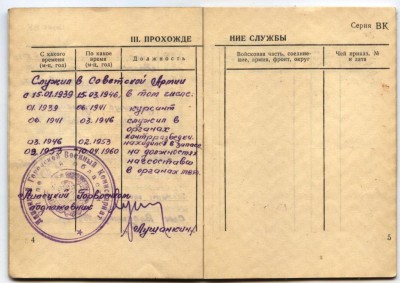 III. ПРОХОЖДЕ
С какого времени (м-ц, год)
По какое время (м-ц, год)
Должность
Служил в Советской Армии
с 15.01.1939 15.03.1946, в том числе:
01.1939 06.1941 курсант
06.1941 03.1946 служил в
органах
контрразведки.
03.1946 02.1953 находился в запасе
02.1953 1960 на должностях
начсостава
в органах
Липецкий Горвоенком
подполковник
Лушонкин
4
НИЕ СЛУЖБЫ
Серия ВК
Войсковая часть, соедине-
ние, армия, фронт, округ
Чей приказ, №
и дата
5